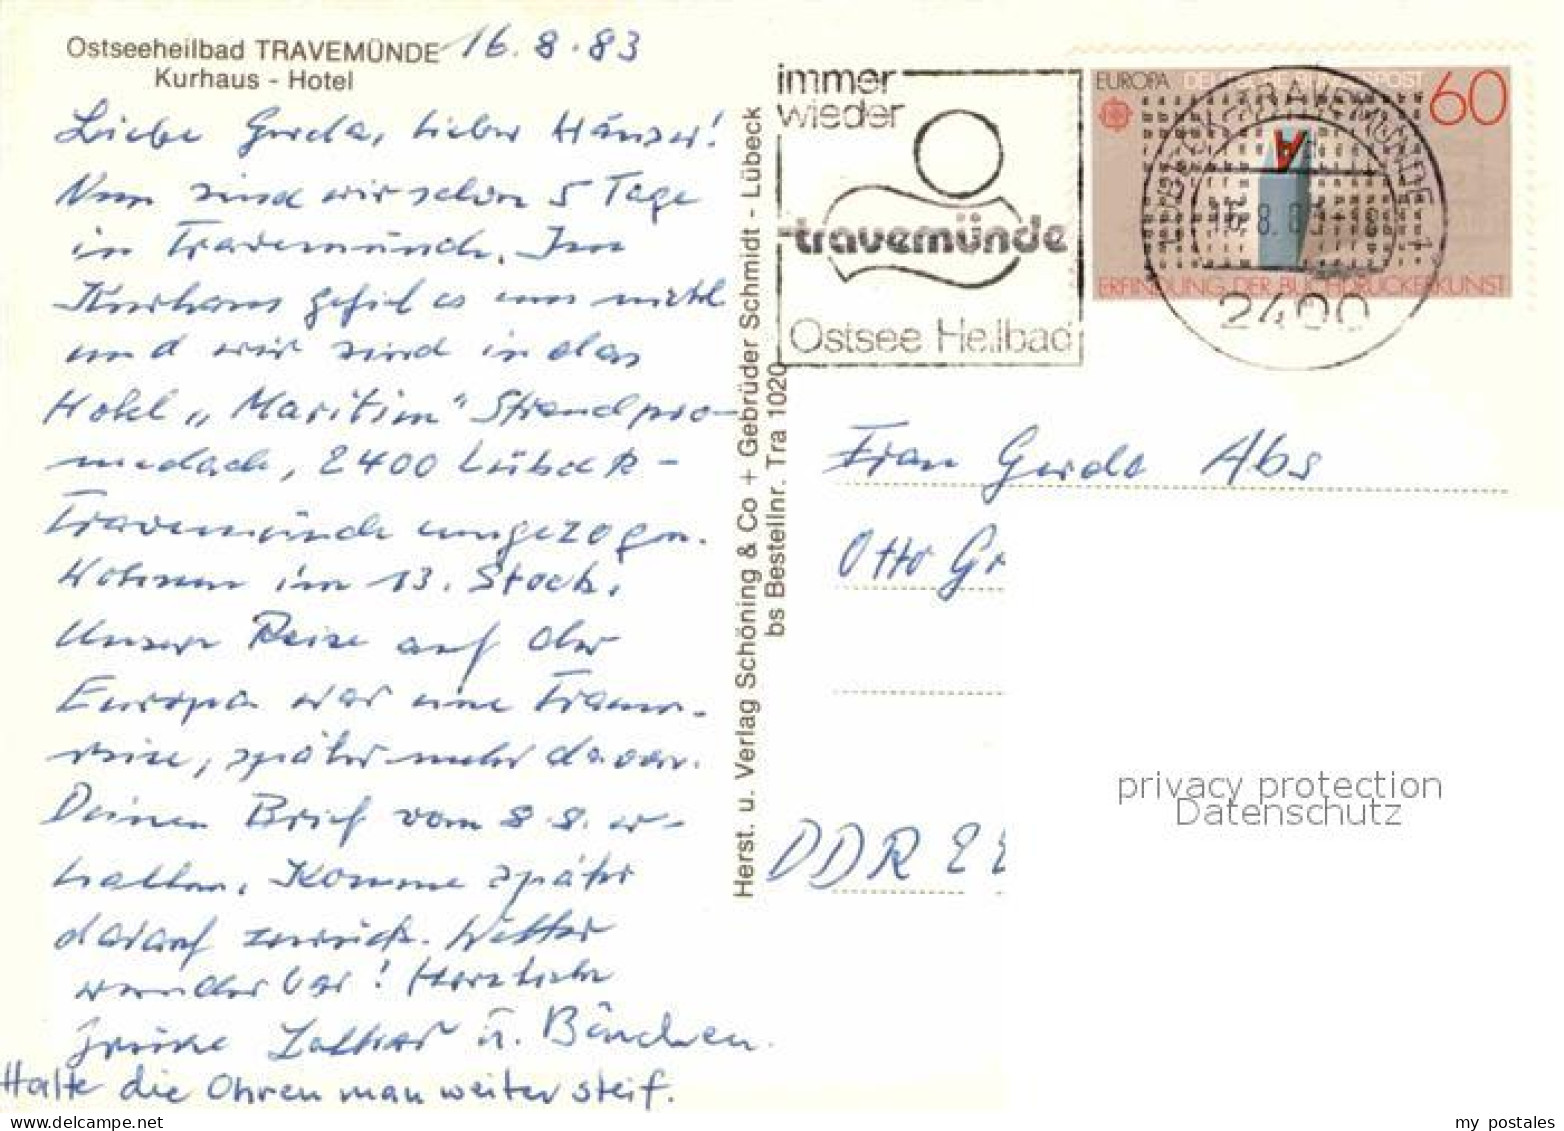 Ostseeheilbad TRAVEMÜNDE 16.8.83
Kurhaus - Hotel
Liebe Gerda, lieber Hänser!
Nun sind wir schon 5 Tage
in Travemünde. Im
Kurhaus gefiel es uns nicht
und wir sind in das
Hotel „Maritim" Strandpro-
menade, 2400 Lübeck-
Travemünde umgezogen.
Wohnen im 13. Stock.
Unsere Reise auf der
Europa war eine Traum-
reise, später mehr davon.
Deinen Brief vom 8.8. er-
halten. Komme später
darauf zurück. Wetter
wunderbar! Herzliche
Grüße Lothar u. Bänchen.
Halte die Ohren man weiter steif.
Herst. u. Verlag Schöning & Co + Gebrüder Schmidt - Lübeck
bs Bestellnr. Tra 1020
immer
wieder
travemünde
Ostsee Heilbad
EUROPA DEUTSCHE BUNDESPOST 60
ERFINDUNG DER BUCHDRUCKERKUNST
TRAVEMÜNDE 1
2400
Frau Gerda Abs
Otto Gr
DDR 22
privacy protection
Datenschutz
my postales